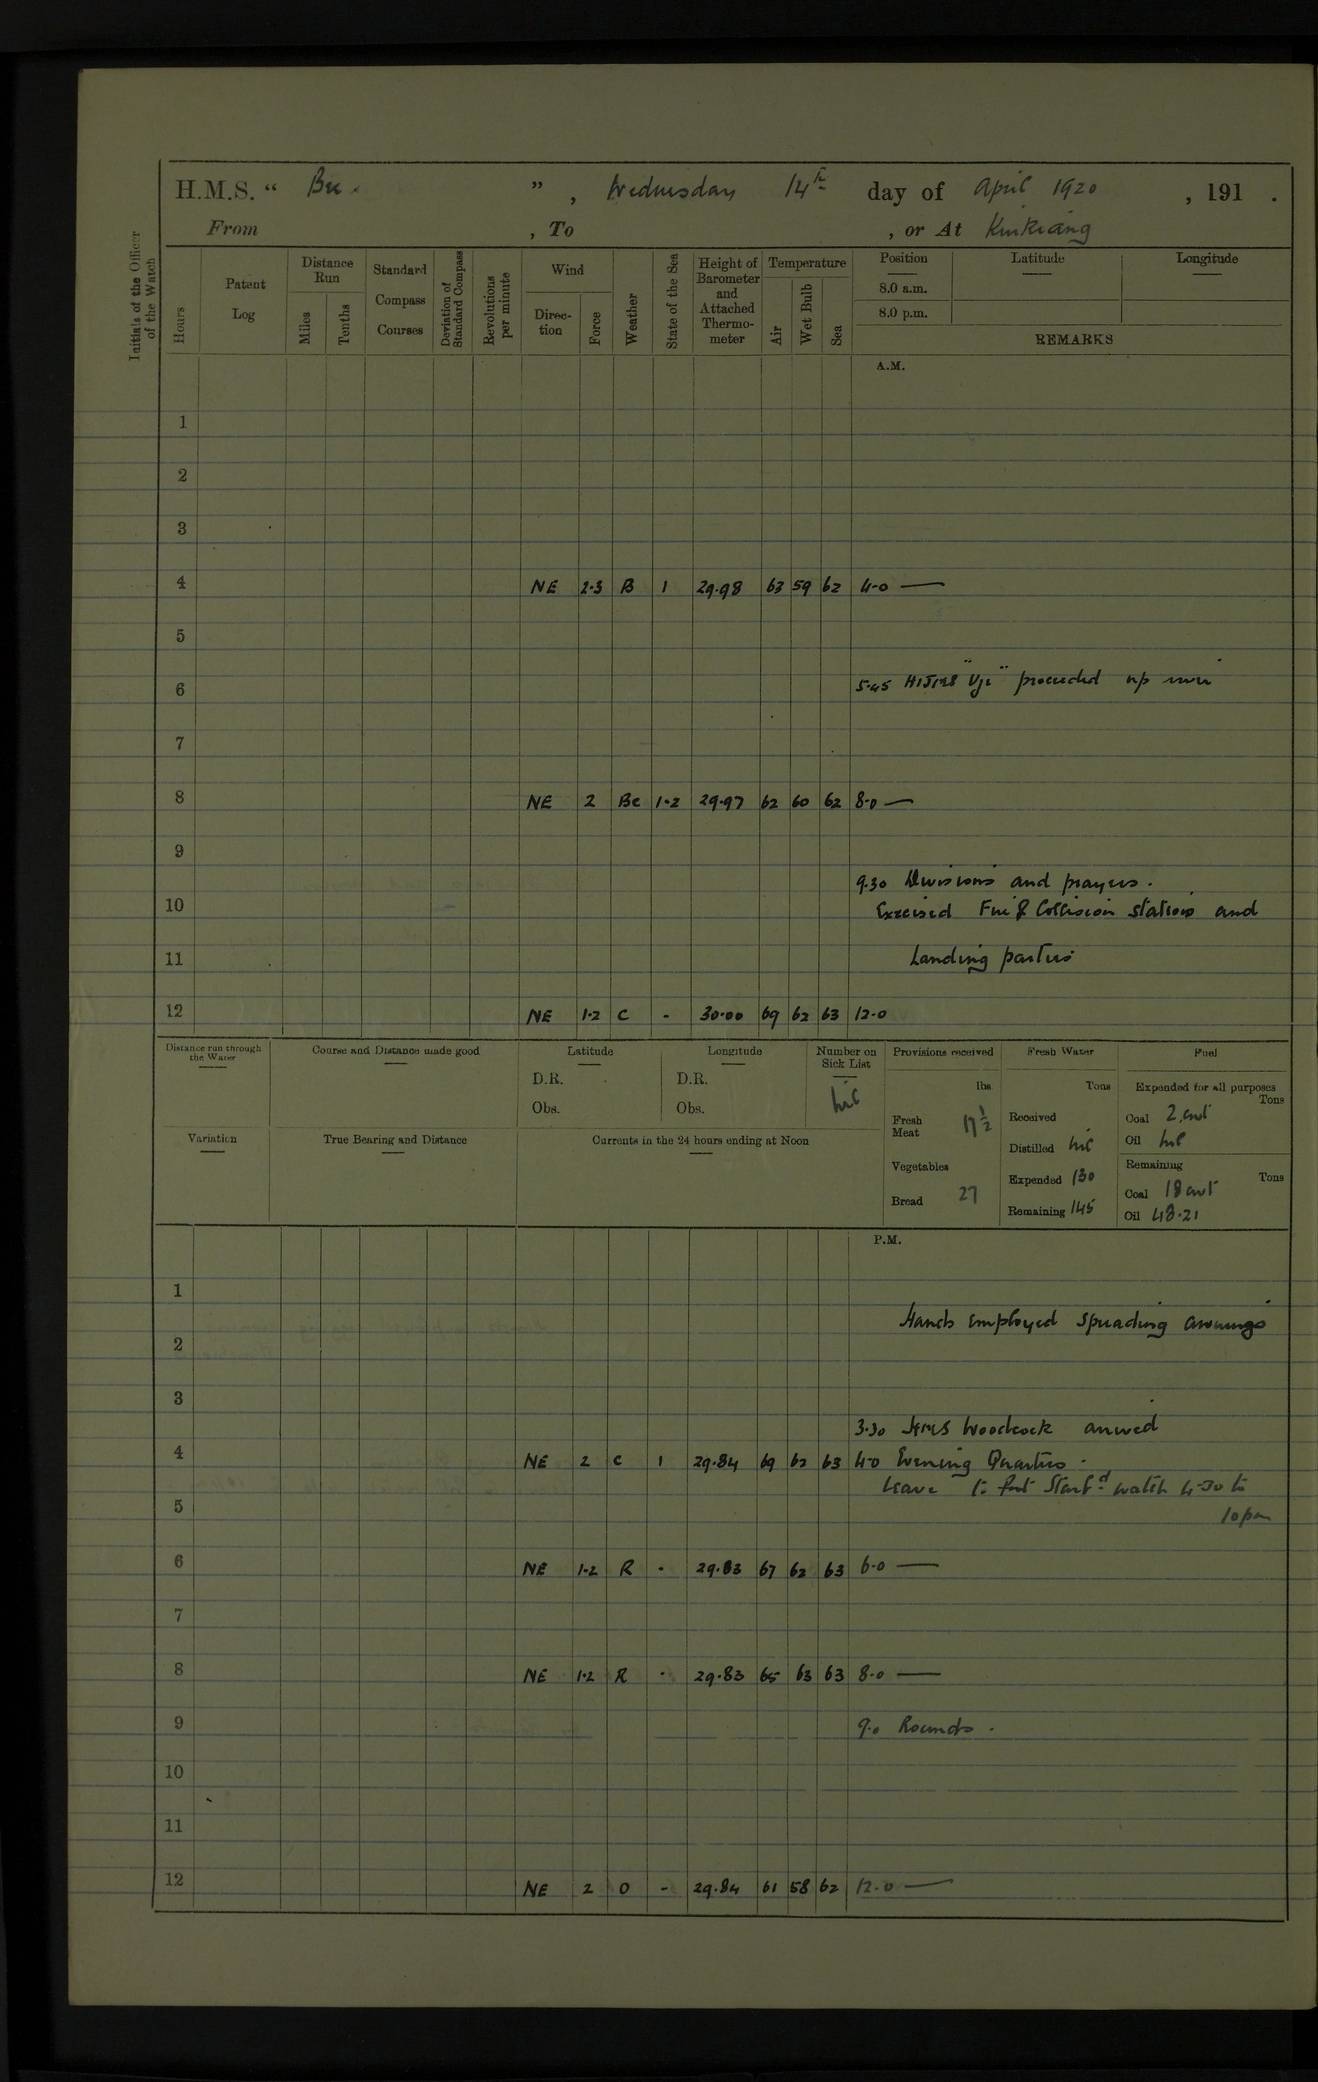 H.M.S. “ Bee. ” , Wednesday 14th day of April 1920 , 191 .
From , To , or At Kiukiang
Initials of the Officer of the Watch
Hours
Patent Log
Distance Run
Miles
Tenths
Standard Compass Courses
Deviation of Standard Compass
Revolutions per minute
Wind
Direction
Force
Weather
State of the Sea
Height of Barometer and Attached Thermometer
Temperature
Air
Wet Bulb
Sea
Position
8.0 a.m.
8.0 p.m.
Latitude
Longitude
REMARKS
A.M.
1
2
3
4 NE 2.3 B 1 29.98 63 59 62 4.0 —
5
6 5.45 HIJMS "Uji" proceeded up river
7
8 NE 2 Bc 1.2 29.97 62 60 62 8.0 —
9
9.30 Divisions and prayers.
10 Exercised Fire & Collision stations and
11 Landing parties
12 NE 1.2 C - 30.00 69 62 63 12.0
Distance run through the Water
Course and Distance made good
Latitude
D.R.
Obs.
Longitude
D.R.
Obs.
Number on Sick List
nil
Provisions received
lbs
Fresh Meat 17 1/2
Vegetables
Bread 27
Fresh Water
Tons
Received
Distilled nil
Expended 130
Remaining 145
Fuel
Expended for all purposes
Tons
Coal 2 cwt
Oil nil
Remaining
Tons
Coal 18 cwt
Oil 48.21
Variation
True Bearing and Distance
Currents in the 24 hours ending at Noon
P.M.
1
Hands employed spreading awnings
2
3
3.30 HMS Woodcock arrived
4 NE 2 C 1 29.84 69 62 63 4.0 Evening Quarters.
Leave to part Starbd watch 4.30 to
5 10 pm
6 NE 1.2 R - 29.83 67 62 63 6.0 —
7
8 NE 1.2 R - 29.83 65 63 63 8.0 —
9 9.0 Rounds.
10
11
12 NE 2 O - 29.84 61 58 62 12.0 —